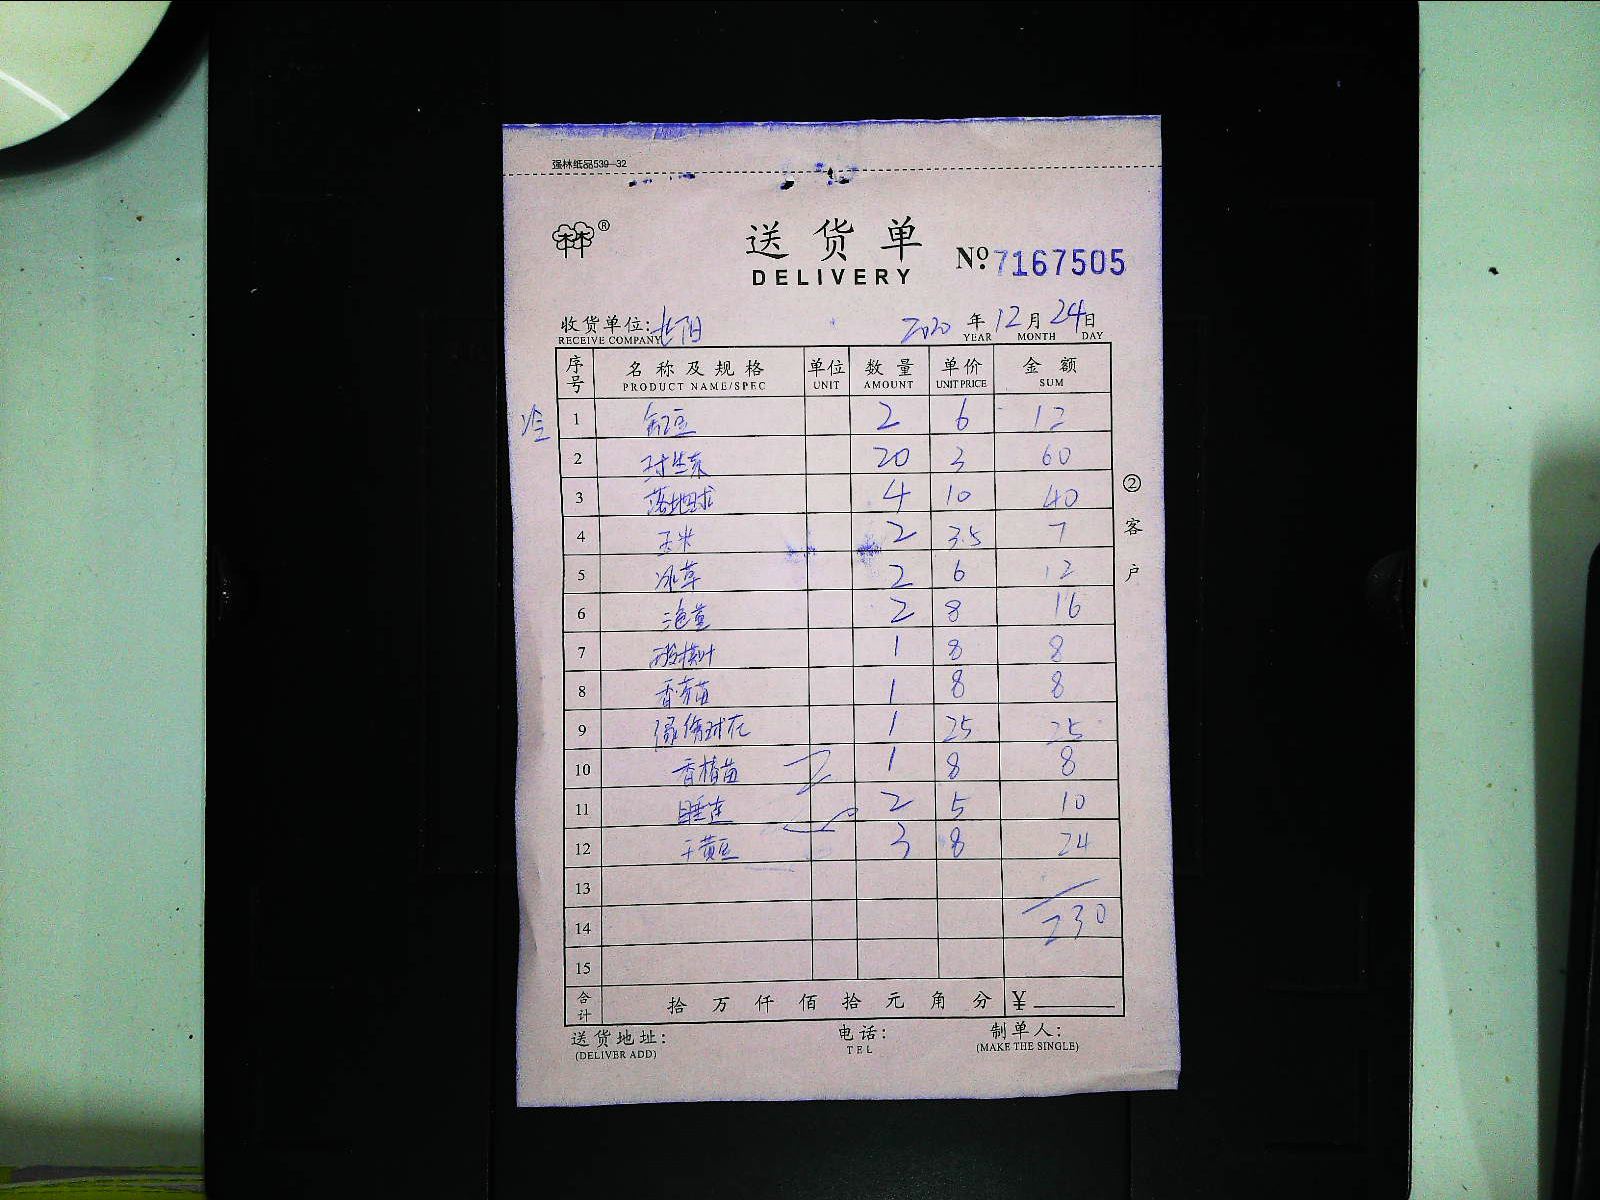 强林纸品539-32
林林®
送货单
DELIVERY
No. 7167505
收货单位: 北阳 2020 年 12 月 24 日
RECEIVE COMPANY YEAR MONTH DAY
序号 名称及规格 单位 数量 单价 金额
PRODUCT NAME/SPEC UNIT AMOUNT UNIT PRICE SUM
冷 1 2 6 12
2 20 3 60
3 落地球 4 10 40
4 玉米 2 3.5 7
5 冰草 2 6 12
6 2 8 16
7 1 8 8
8 香茅苗 1 8 8
9 球花 1 25 25
10 香椿苗 1 8 8
11 睡莲 2 5 10
12 干黄豆 3 8 24
13
14 230
15
合计 拾 万 仟 佰 拾 元 角 分 ¥
送货地址: 电话: 制单人:
(DELIVER ADD) TEL (MAKE THE SINGLE)
② 客户